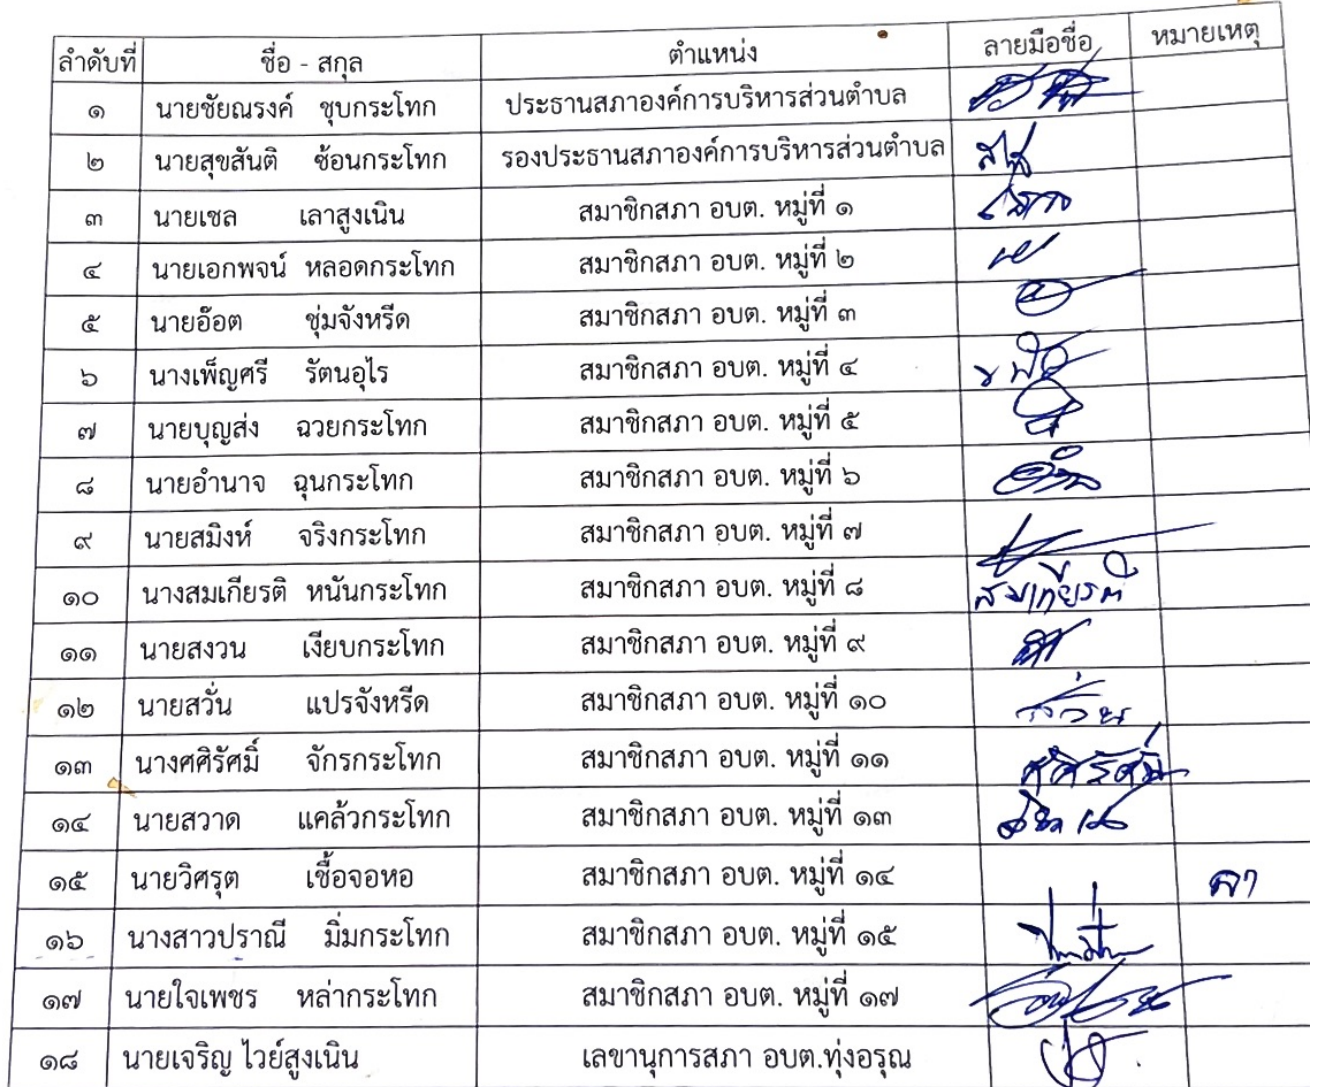 ลำดับที่ ชื่อ - สกุล ตำแหน่ง ลายมือชื่อ หมายเหตุ
๑ นายชัยณรงค์ ชุบกระโทก ประธานสภาองค์การบริหารส่วนตำบล
๒ นายสุขสันติ ซ้อนกระโทก รองประธานสภาองค์การบริหารส่วนตำบล
๓ นายเชล เลาสูงเนิน สมาชิกสภา อบต. หมู่ที่ ๑
๔ นายเอกพจน์ หลอดกระโทก สมาชิกสภา อบต. หมู่ที่ ๒
๕ นายอ๊อต ชุ่มจังหรีด สมาชิกสภา อบต. หมู่ที่ ๓
๖ นางเพ็ญศรี รัตนอุไร สมาชิกสภา อบต. หมู่ที่ ๔
๗ นายบุญส่ง ฉวยกระโทก สมาชิกสภา อบต. หมู่ที่ ๕
๘ นายอำนาจ ฉุนกระโทก สมาชิกสภา อบต. หมู่ที่ ๖
๙ นายสมิงห์ จริงกระโทก สมาชิกสภา อบต. หมู่ที่ ๗
๑๐ นางสมเกียรติ หนันกระโทก สมาชิกสภา อบต. หมู่ที่ ๘ สมเกียรติ
๑๑ นายสงวน เงียบกระโทก สมาชิกสภา อบต. หมู่ที่ ๙
๑๒ นายสวั่น แปรจังหรีด สมาชิกสภา อบต. หมู่ที่ ๑๐
๑๓ นางศศิรัศมิ์ จักรกระโทก สมาชิกสภา อบต. หมู่ที่ ๑๑ ศศิรัศมิ์
๑๔ นายสวาด แคล้วกระโทก สมาชิกสภา อบต. หมู่ที่ ๑๓
๑๕ นายวิศรุต เชื้อจอหอ สมาชิกสภา อบต. หมู่ที่ ๑๔ ลา
๑๖ นางสาวปราณี มิ่มกระโทก สมาชิกสภา อบต. หมู่ที่ ๑๕
๑๗ นายใจเพชร หล่ากระโทก สมาชิกสภา อบต. หมู่ที่ ๑๗
๑๘ นายเจริญ ไวย์สูงเนิน เลขานุการสภา อบต.ทุ่งอรุณ